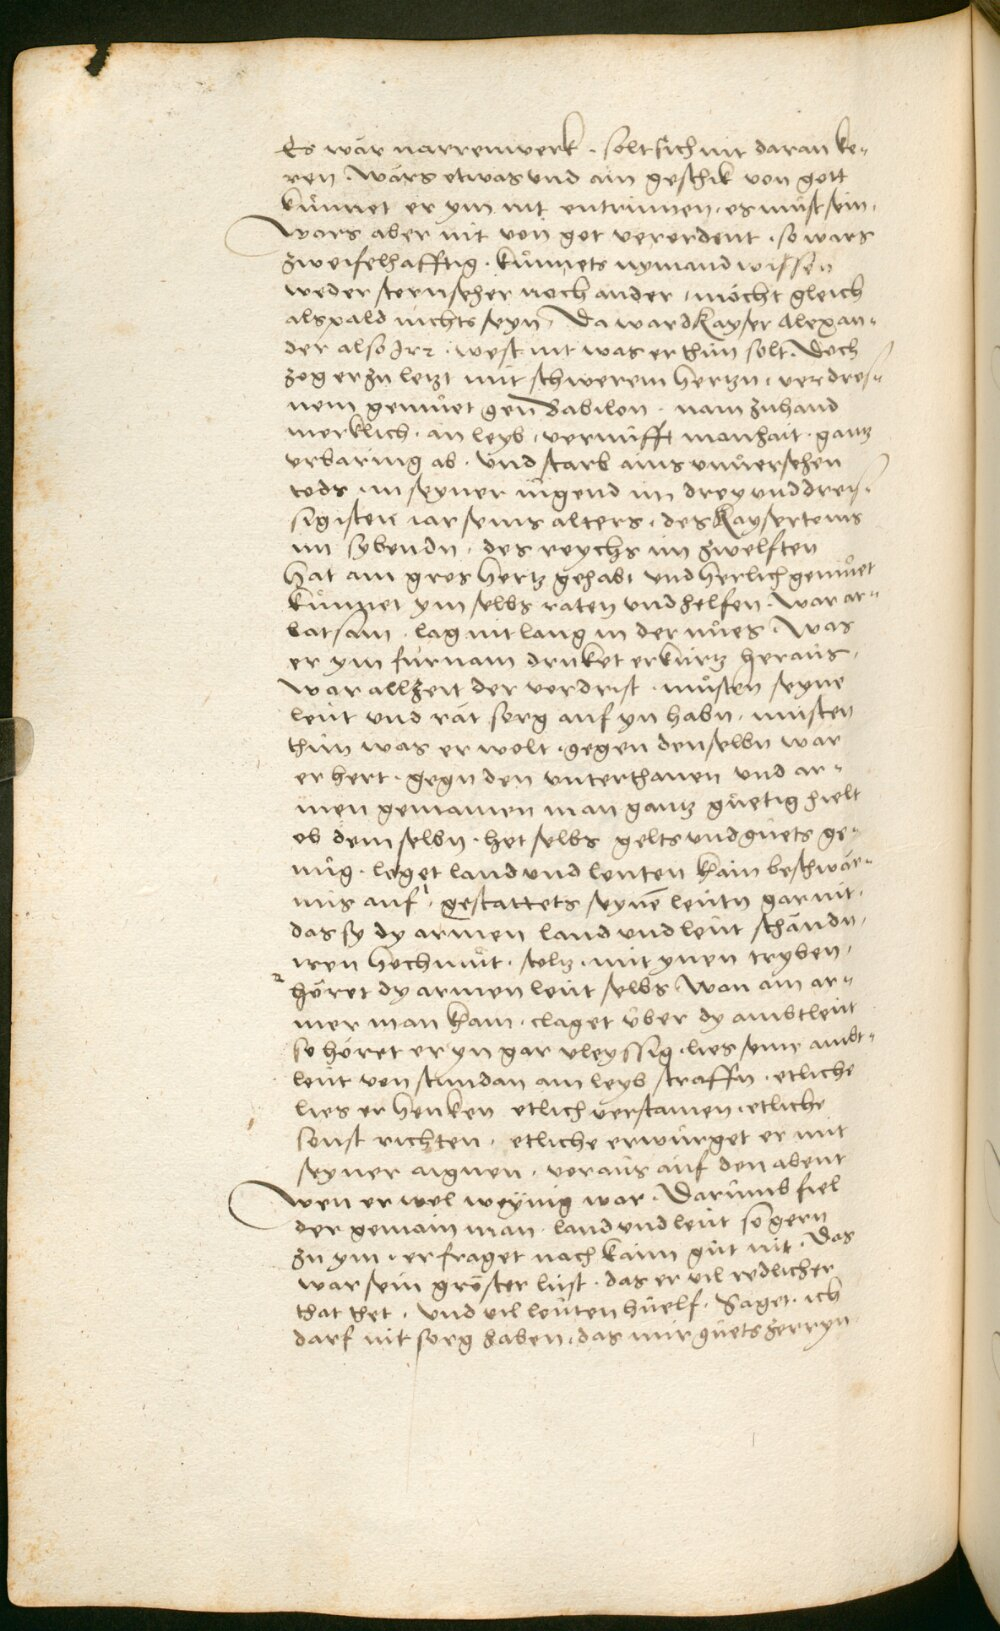 Es wär narrenwerk . solt sich nit daran ke=
ren . Wärs etwas und ain geschik von gott
kůnnet er ym nit entrinnen . es můst sein .
Wärs aber nit von got verordent . so wars
zweifelhafftig . kůnnets nymand wissen
weder sternseher noch ander , möcht gleich
alspald nichts seyn , Da ward Kayser Alexan=
der also Irr . west nit was er thůn solt . Doch
zog er zu letzt mit schwerem hertzn . verdros=
nem gemüet gen Babilon . nam zuhand
merklich . an leyb , vernůfft manhait . gantz
urbaring ab . und starb ains unuersehen
tods . in seyner iugend im drey und dreis=
sigisten iar seins alters . des Kaysertoms
im sybendn . des reychs im zwelften
Hat ain gros hertz gehabt und herlich gemüet
kůnnet ym selbs raten und helfen . War ar=
batsam . lag nit lang in der můes . Was
er ym fürnam druket er kürtz heraus .
War allzeit der vordrist . můsten seyne
leüt und rät sorg auf yn habn . musten
thůn was er wolt . gegen denselbn war
er hert . gegn den unterthanen und ar=
men gemainen man gantz güetig hielt
ob demselbn . het selbs gelts und guets ge=
nůg . leget land und leuten kain beschwär=
nus auf , gestattets seynē leütn gar nit .
das sy dy armen land und leüt schändn .
iren hochmůt . stoltz . mit ynen tryben .
höret dy armen leüt selbs . Wan ain ar=
mer man kam . claget über dy ambtleüt
so höret er yn gar vleyssig . lies seine ambt=
leüt von stundan am leyb straffn . etliche
lies er henken etlich verstainen . etliche
sonst richten . etliche erwürget er mit
seyner aignen . voraus auf den abent
Wen er wol weynig war . Darumb fiel
der gemain man . land und leüt so gern
zu ym . er fraget nach kaim gůt nit . Das
war sein gröster lust . das er vil redlicher
that thet . und vil leüten hüelf . Saget . ich
darf nit sorg haben . das mir guets zerryn